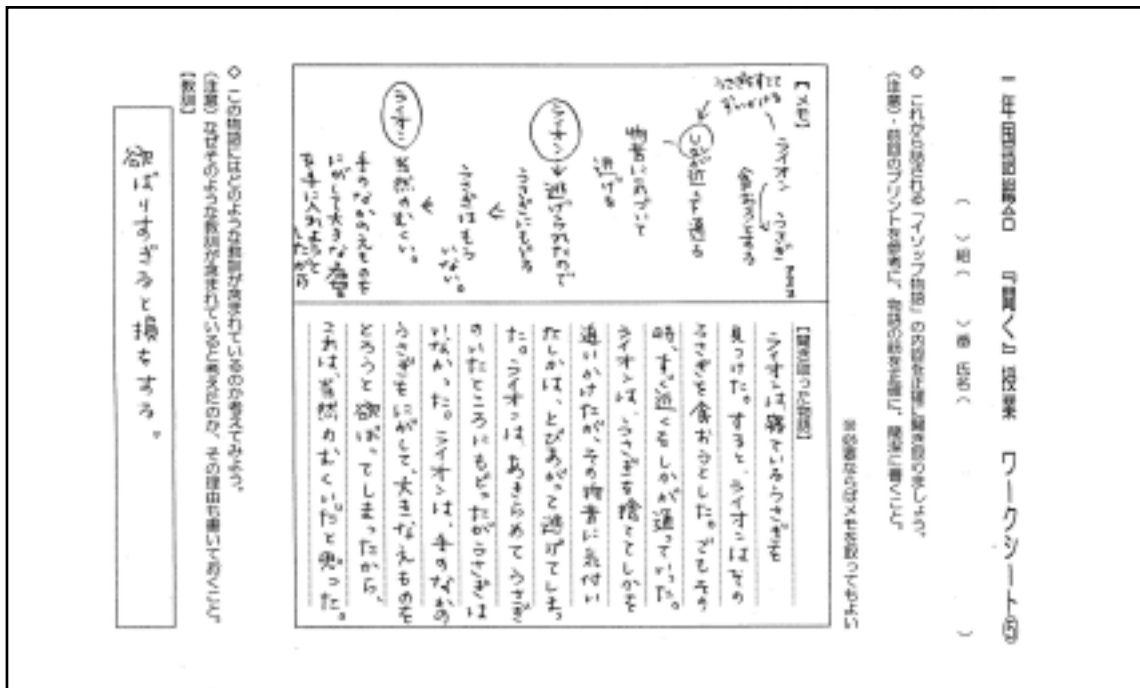 一年国語総合 『聞く』授業 ワークシート⑤
( )組( )番 氏名( )
◇ これから話される「イソップ物語」の内容を正確に聞き取りましょう。
(注意)・前回のプリントを参考に、物語の筋を正確に、簡潔に書くこと。
※必要ならばメモを取ってもよい
【メモ】
ライオン うさぎ
食おうとする
しかが近くを通る
物音に気づいて
逃げる
ライオン→逃げられたので
うさぎにもどる
うさぎはもう
いない。
ライオン
当然のむくい。
手のなかのえものを
にがして大きな希望
を手に入れようと
したから
【聞き取った物語】
ライオンは寝ているうさぎを
見つけた。すると、ライオンはその
うさぎを食おうとした。でもその
時、すぐ近くをしかが通っていった。
ライオンは、うさぎを捨ててしかを
追いかけたが、その物音に気付い
たしかは、とびあがって逃げてしまっ
た。ライオンは、あきらめてうさぎ
のいたところにもどったがうさぎは
いなかった。ライオンは、手のなかの
うさぎをにがして、大きなえものを
とろうと欲ばってしまったから、
これは、当然のむくいだと思った。
◇ この物語にはどのような教訓が含まれているのか考えてみよう。
(注意)なぜそのような教訓が含まれていると考えたのか、その理由も書いておくこと。
【教訓】
欲ばりすぎると損をする。